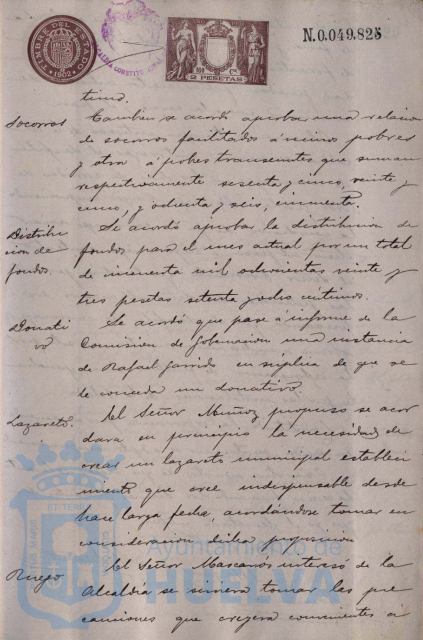 TIMBRE DEL ESTADO
1902
ALCALDIA CONSTITUCIONAL
2 PESETAS
N.0.049.825
timo.
Socorros
Tambien se acordó aprobar una relacion
de socorros facilitados á vecinos pobres
y otra á pobres transeuntes que suman
respectivamente sesenta y cinco, veinte y
cinco, y ochenta y seis, cincuenta.
Distribu
cion de
fondos.
Se acordó aprobar la distribucion de
fondos para el mes actual por un total
de cincuenta mil ochocientas veinte y
tres pesetas setenta y ocho céntimos.
Donati
vo
Se acordó que pase á informe de la
Comision de Gobernacion una instancia
de Rafael Garrido en súplica de que se
le conceda un donativo.
Lazareto.
El Señor Muñoz propuso se acor
dara en principio la necesidad de
crear un lazareto municipal estableci
miento que cree indispensable desde
hace larga fecha, acordándose tomar en
consideracion dicha proposicion
Ruego
El Señor Mascarós interesó de la
Alcaldia se sirviera tomar las pre
cauciones que creyera convenientes á
Ayuntamiento de
HUELVA